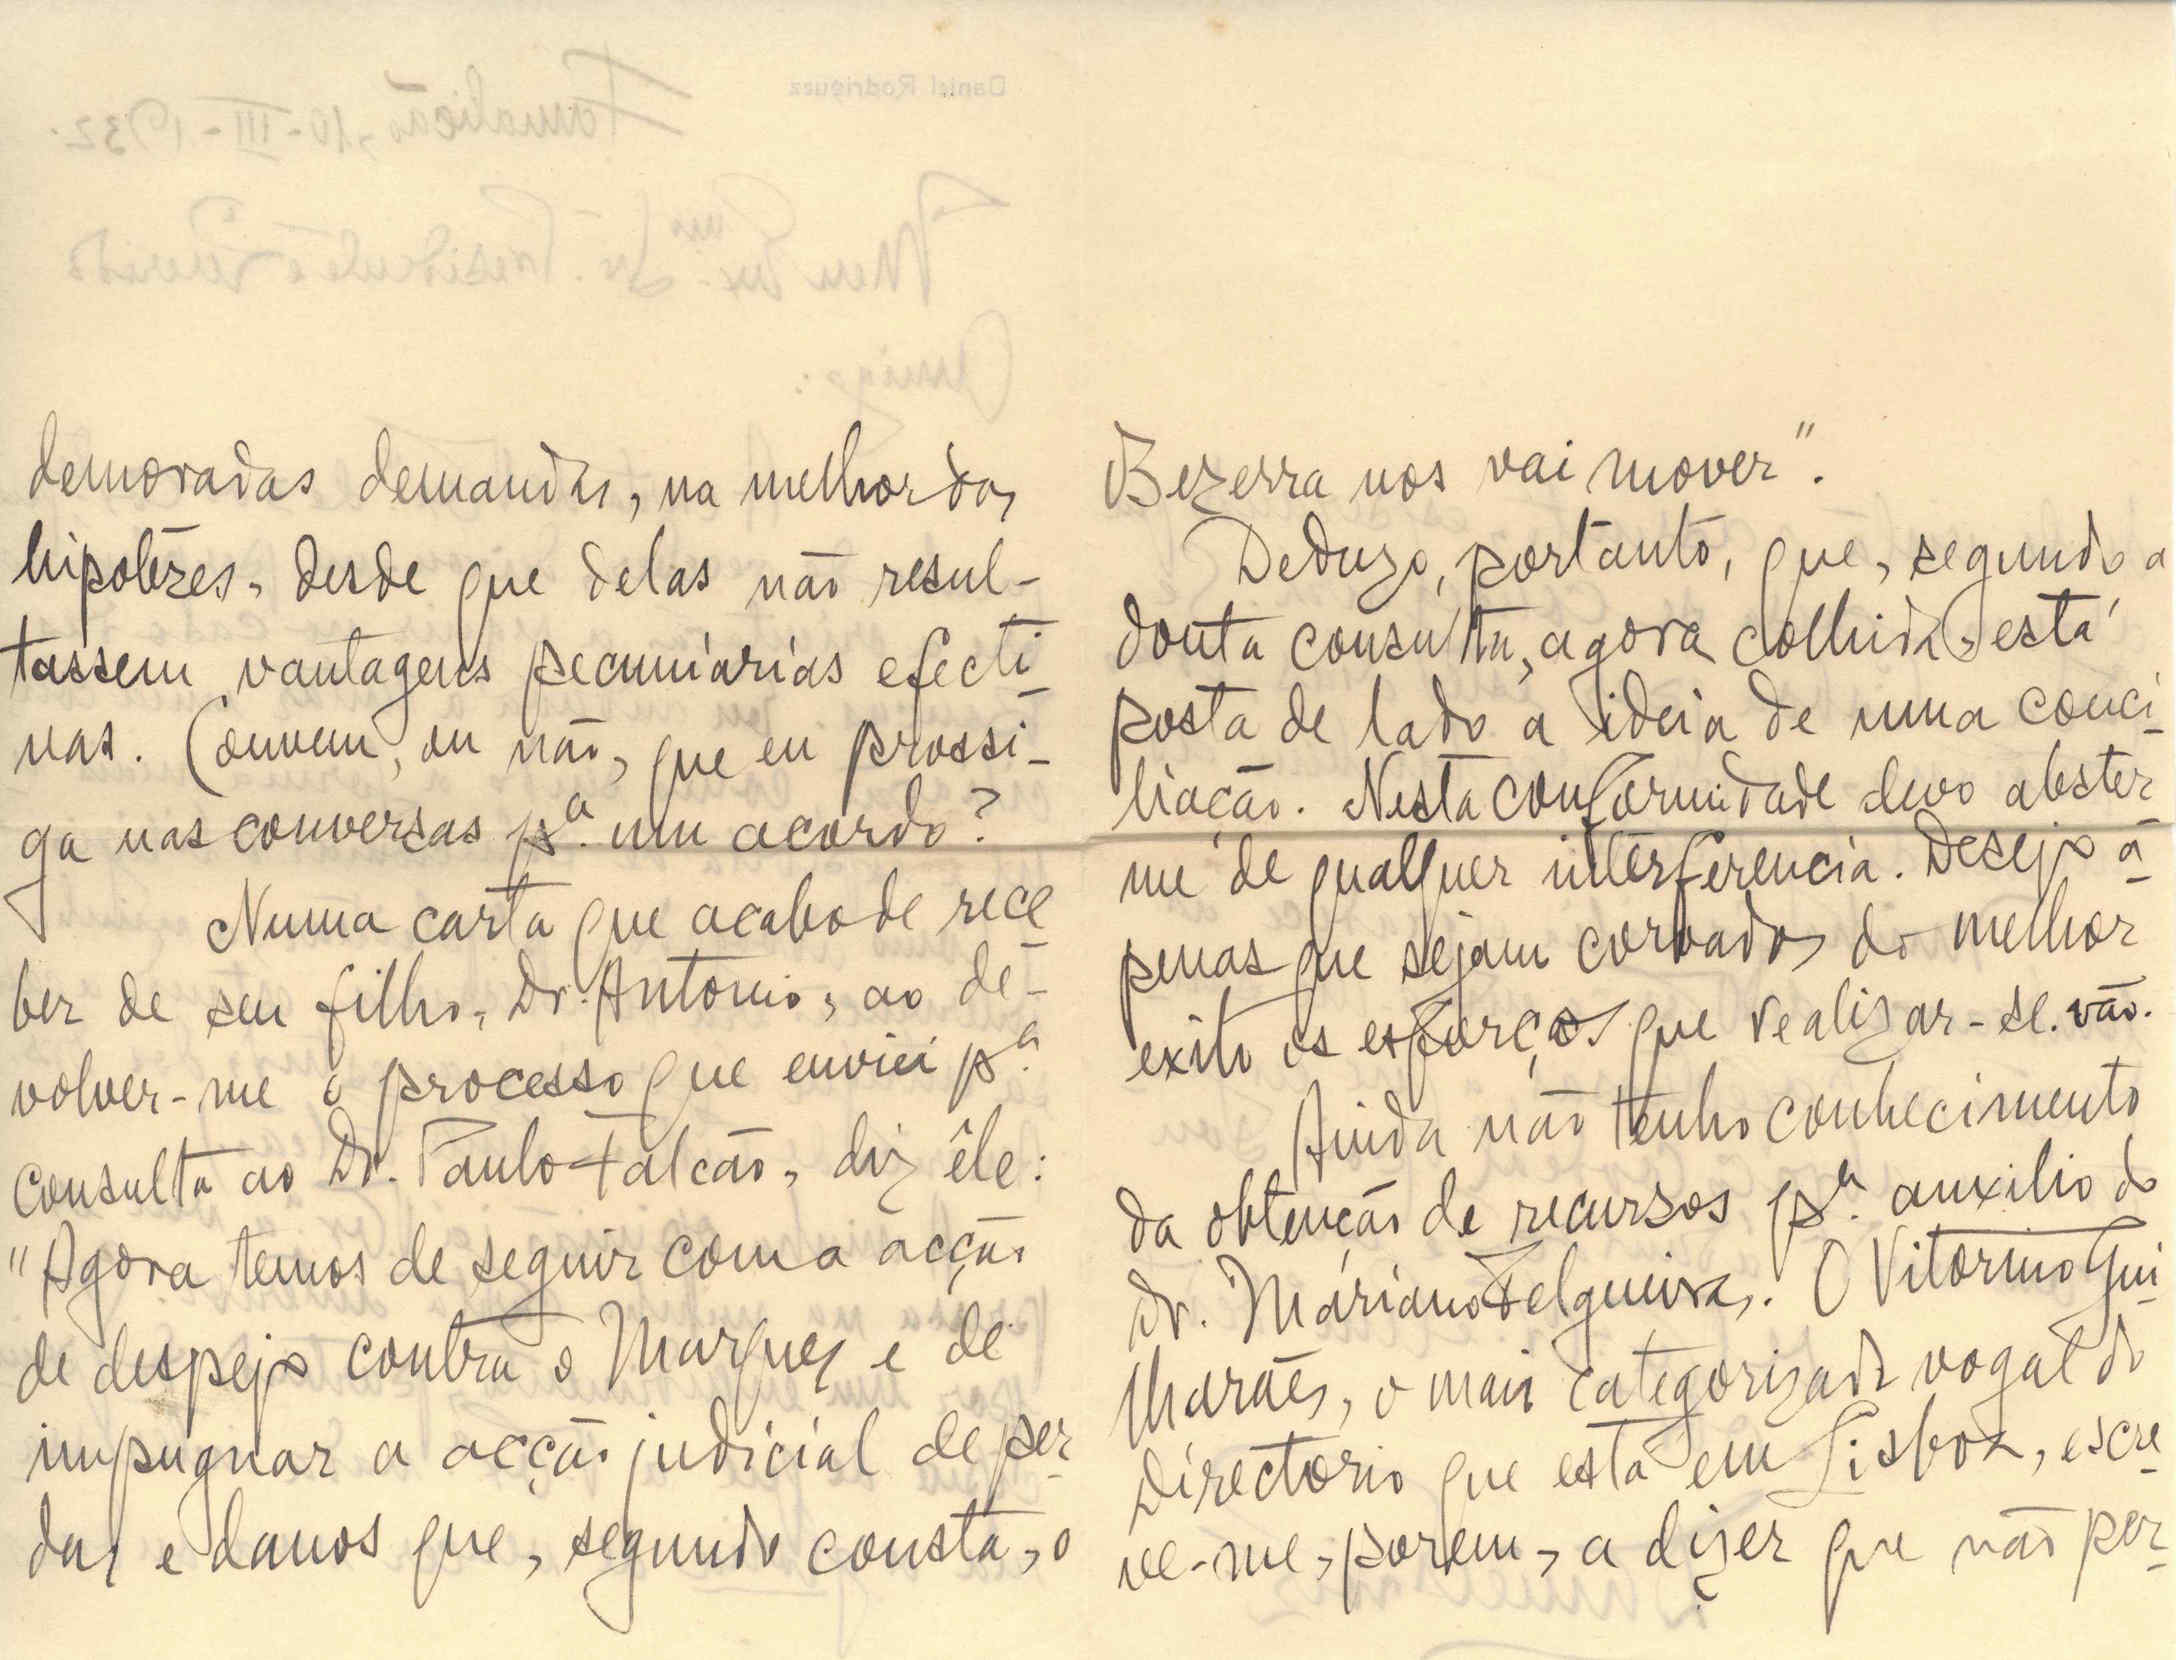 demoradas demandas, na melhor das
hipotèses, desde que delas não resul-
tassem vantagens pecuniarias efecti-
vas. Convem, ou não, que eu prossi-
ga nas conversas pª. um acordo?
Numa carta que acabo de rece-
ber de seu filho, Dr. Antonio, ao de-
volver-me o processo que enviei pª.
consulta ao Dr. Paulo Falcão, diz êle:
"Agora temos de seguir com a acção
de despejo contra o Marques e de
impugnar a acção judicial de per-
das e danos que, segundo consta, o
Bezerra nos vai mover".
Deduzo, portanto, que, segundo a
douta consulta, agora colhida, está
posta de lado a ideia de uma conci-
liação. Nesta conformidade devo abster
me de qualquer interferencia. Desejo a-
penas que sejam coroados do melhor
exito os esforços que realizar-se-vão.
Ainda não tenho conhecimento
da obtenção de recursos pª. auxilio do
Dr. Mariano Felgueiras. O Vitorino Gui-
marães, o mais categorizado vogal do
Directorio que está em Lisboa, escre-
ve-me, porem, a dizer que não per-
Daniel Rodrigues
Famalicão, 10-III-1932.
Meu Exmº. Sr. Presidente e querido
Amigo: